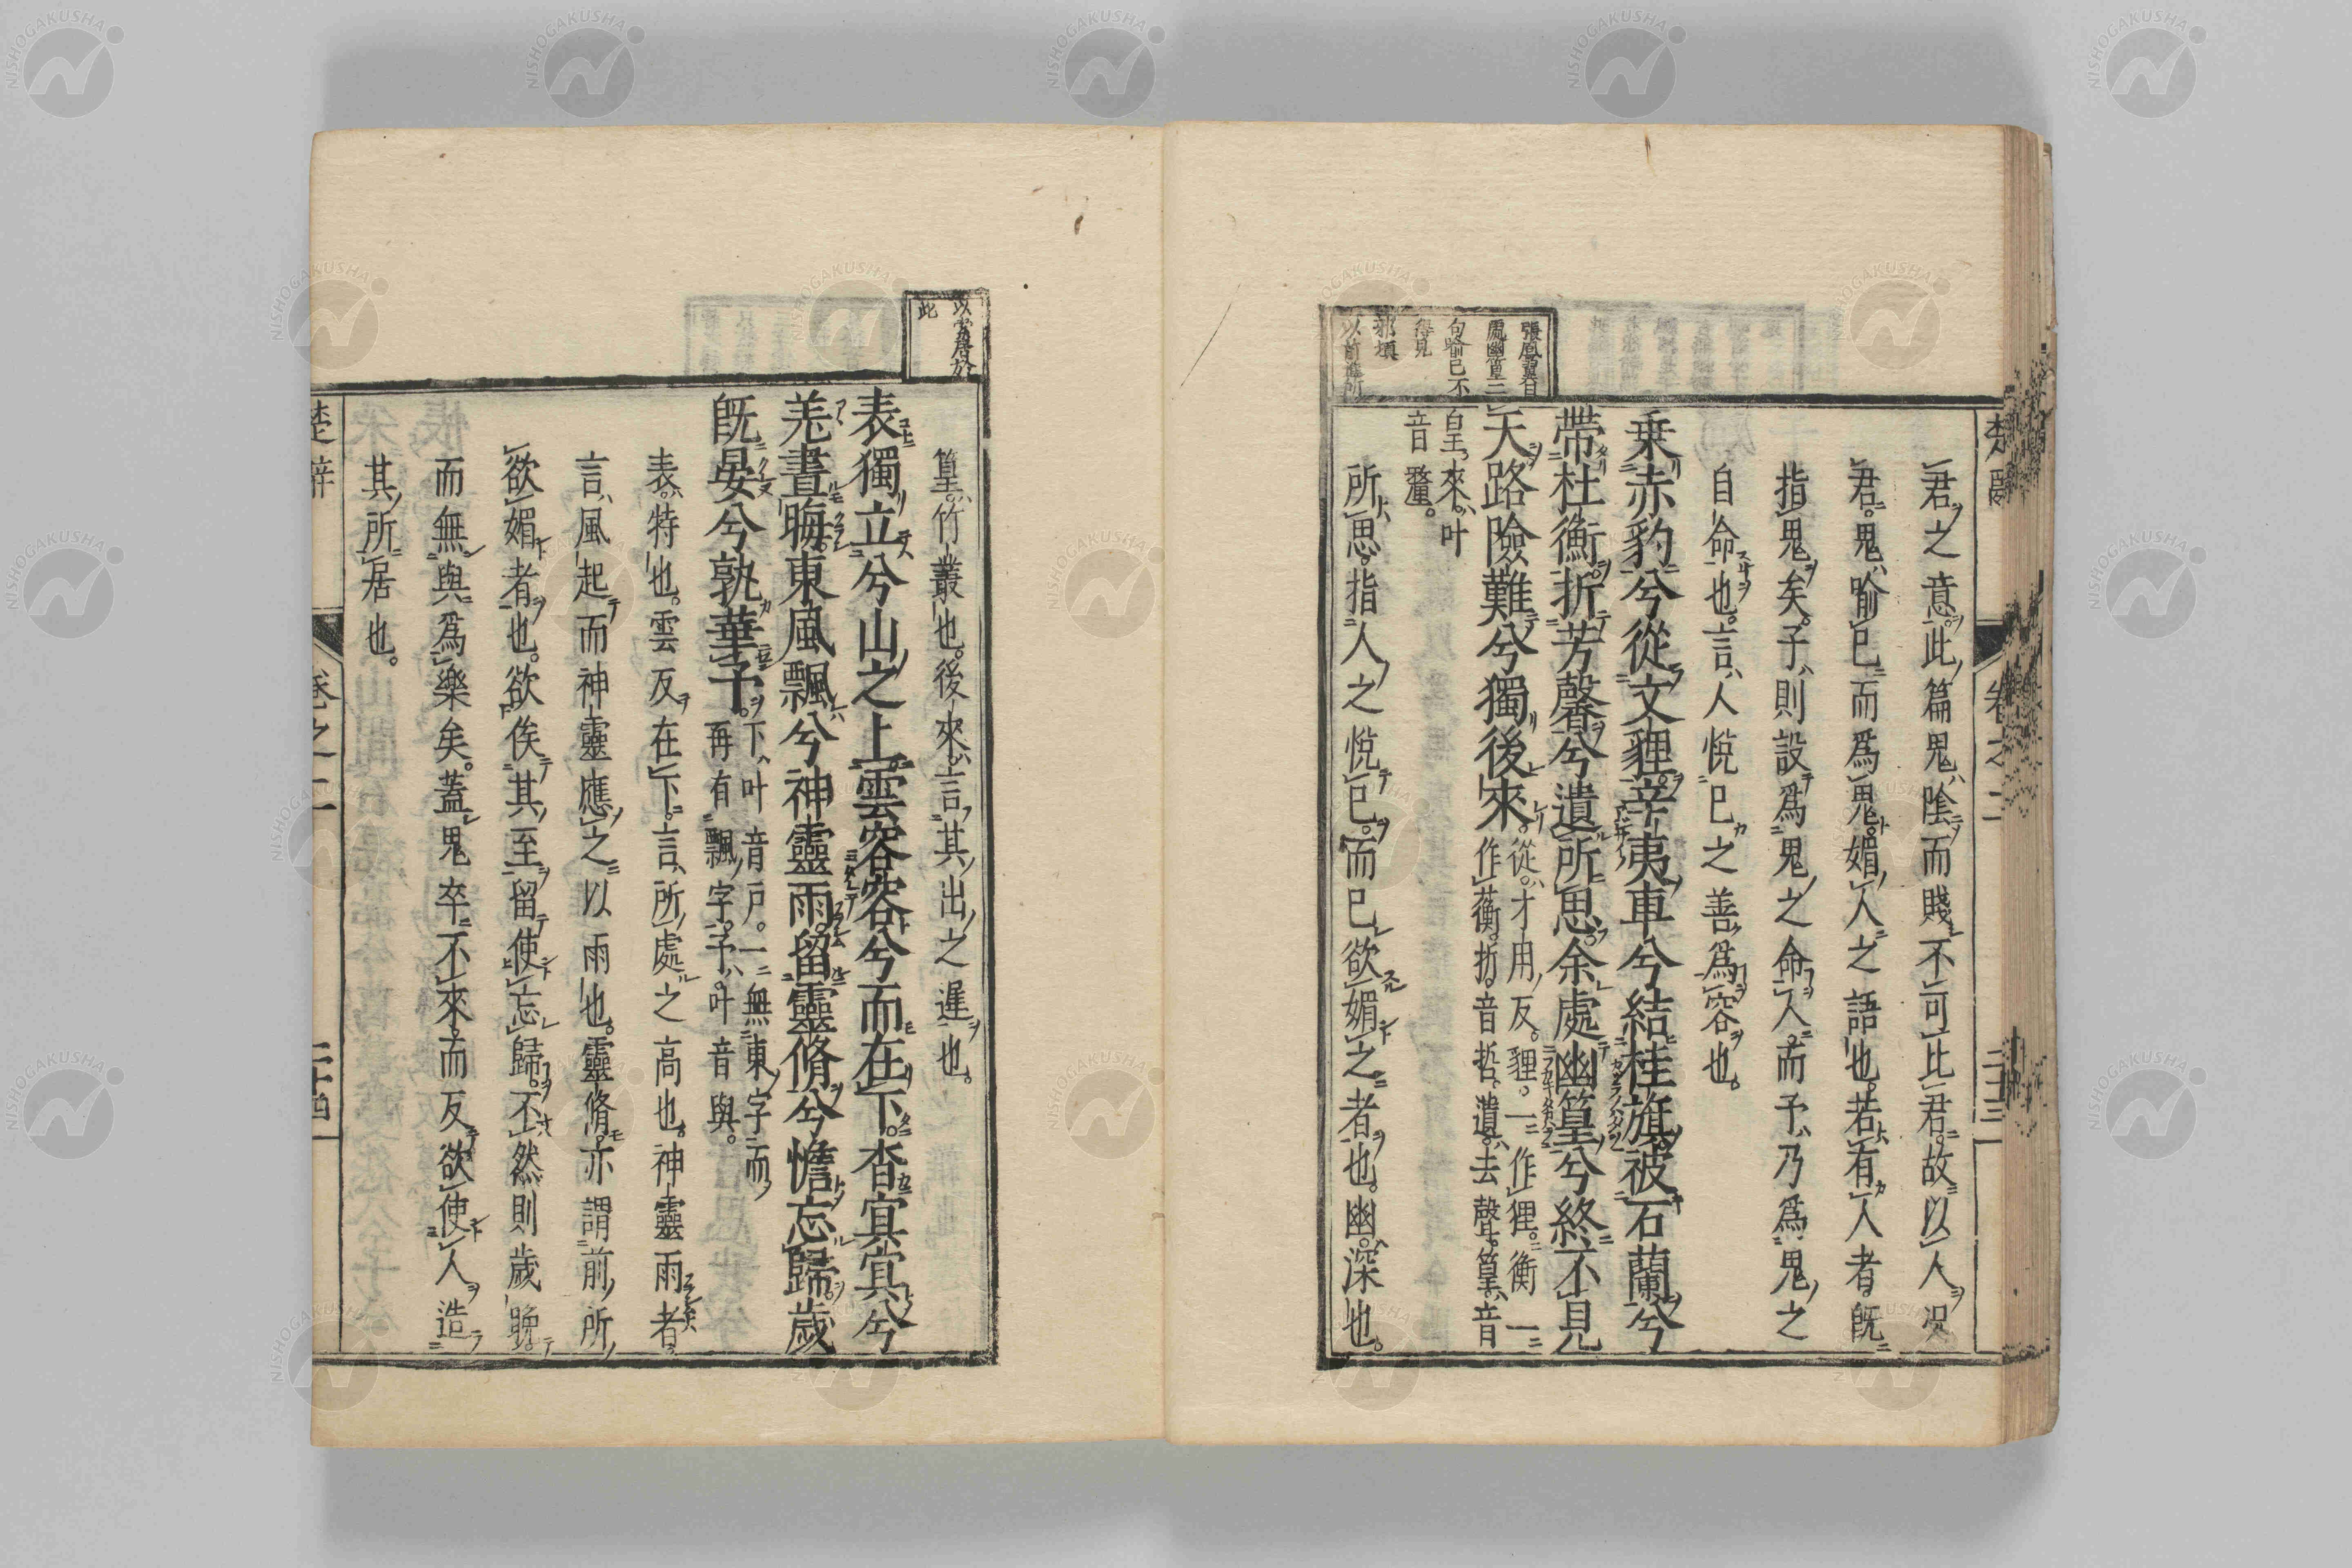 楚辭 卷之二 二十三
君之意此篇鬼陰而賤不可比君故以人況
君鬼喻己而爲鬼媚人之語也若有人者既
指鬼矣子則設爲鬼之命人而予乃爲鬼之
自命也言人悅己之善爲容也
乗赤豹兮從文貍辛夷車兮結桂旗被石蘭兮
帶杜衡折芳馨兮遺所思余處幽篁兮終不見
天路險難兮獨後來從才用反貍一作狸衡一
作蘅折音哲遺去聲篁音
皇來叶
音釐
所思指人之悅己而己欲媚之者也幽深也
張鳳翼曰
處幽篁三
句喻己不
得見
以前
篁竹叢也後來言其出之遲也
以當居於
此
表獨立兮山之上雲容容兮而在下杳冥冥兮
羌晝晦東風飄兮神靈雨留靈脩兮憺忘歸歲
既晏兮孰華予下叶音戸一無東字而
再有飄字予叶音與
表特也雲反在下言所處之高也神靈雨者
言風起而神靈應之以雨也靈脩亦謂前所
欲媚者也欲俟其至留使忘歸不然則歲晩
而無與爲樂矣蓋鬼卒不來而反欲使人造
其所居也
楚辭 卷之二 二十四
NISHOGAKUSHA